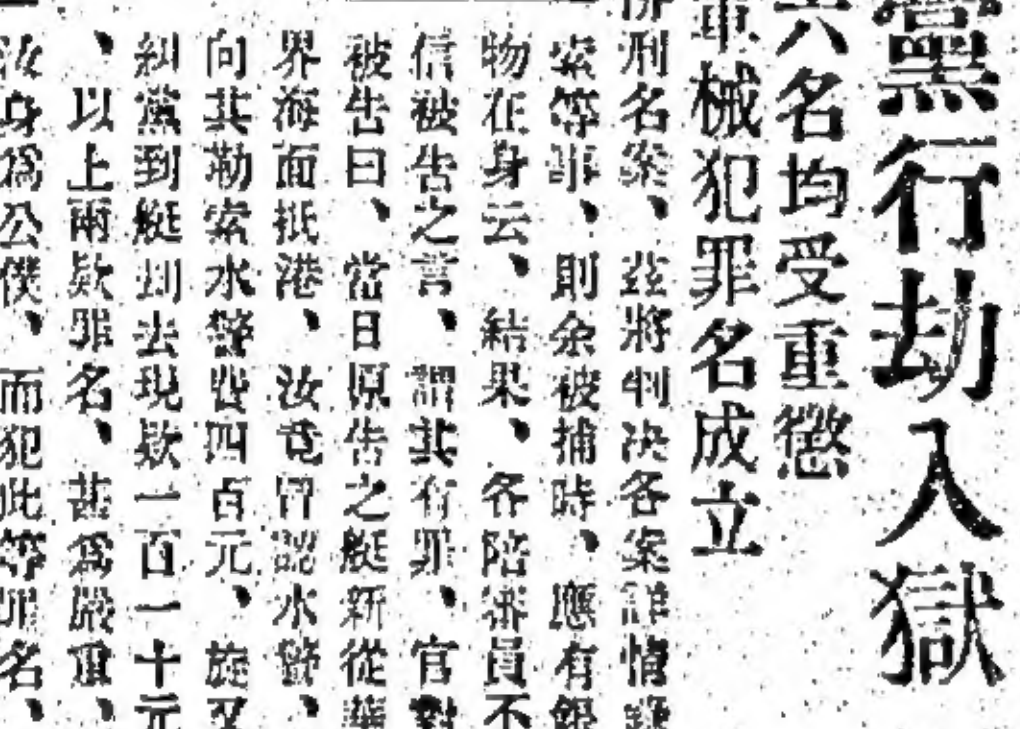 黨行劫入獄
六名均受重懲
軍械犯罪名成立
刑名案、茲將判决各案詳情錄
索等事、則余被捕時、應有銀
物在身云、結果、各陪審員不
信被告之言、謂其有罪、官對
被告曰、當日原告之艇新從華
界海面抵港、汝竟冒認水警、
向其勒索水警費四百元、旋又
糾黨到艇刦去現欵一百一十元
、以上兩欵罪名、甚爲嚴重、
汝身爲公僕、而犯此等罪名、